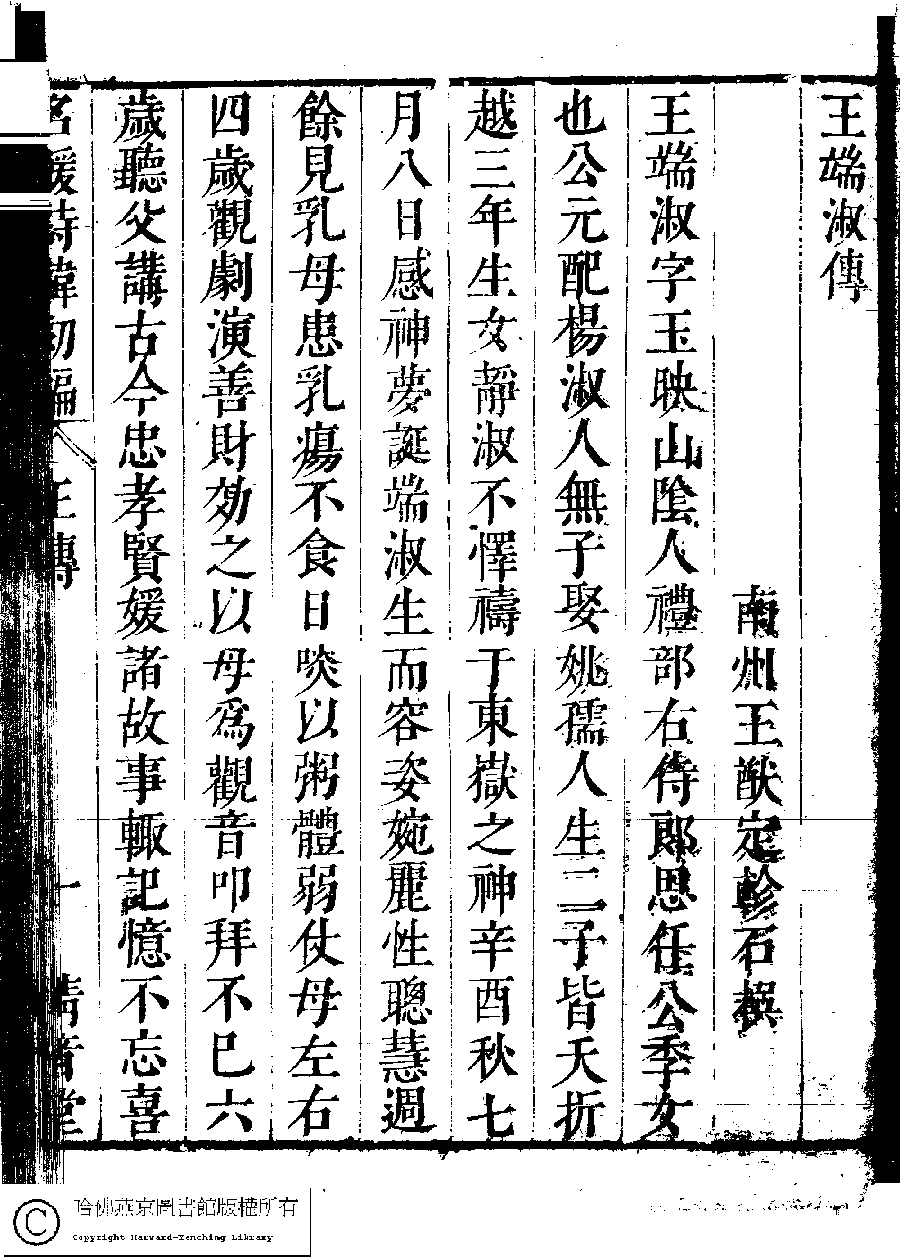 王端淑傳
南州王猷定軫石撰
王端淑字玉映山陰人禮部右侍郎思任公季女
也公元配楊淑人無子娶姚孺人生二子皆夭折
越三年生女靜淑不懌禱于東嶽之神辛酉秋七
月八日感神夢誕端淑生而容姿婉麗性聰慧週
餘見乳母患乳瘍不食日啖以粥體弱仗母左右
四歲觀劇演善財効之以母爲觀音叩拜不已六
歲聽父講古今忠孝賢媛諸故事輙記憶不忘喜
名媛詩緯初編 王傳 一 清音堂
哈佛燕京圖書館版權所有
Copyright Harvard-Yenching Library